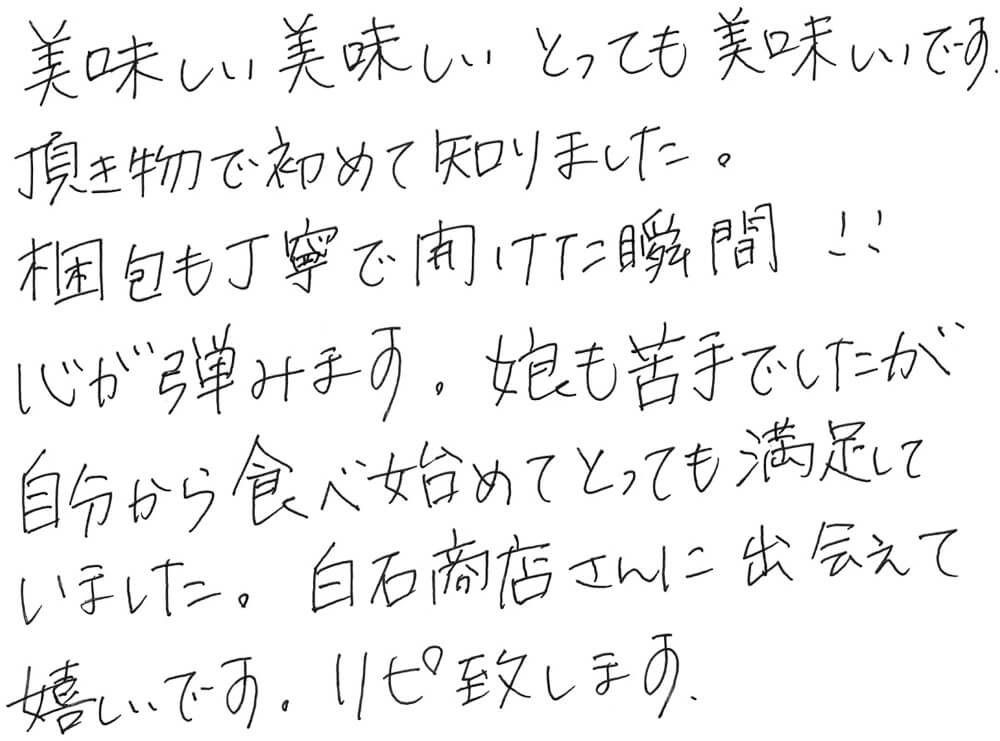 美味しい 美味しい とっても 美味しいです.
頂き物で初めて知りました。
梱包も丁寧で開けた瞬間!!
心が弾みます。娘も苦手でしたが
自分から食べ始めてとっても満足して
いました。白石商店さんに出会えて
嬉しいです。リピ致します.